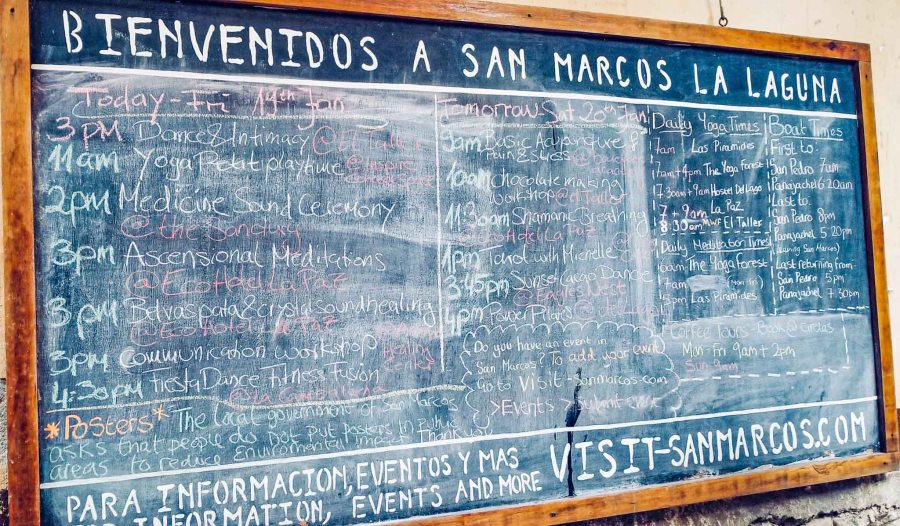 BIENVENIDOS A SAN MARCOS LA LAGUNA
Today - Fri 19th Jan
3PM Dance & Intimacy
11am Yoga Petit playfure
2pm Medicine Sound Ceremony
@ the Sanctury
3pm Ascensional Meditations
@EcoHotel La Paz
3pm Belvaspata & crystal sound healing
@Eco Hotel La Paz
3pm Communication workshop
Healing Center
4:30pm Fiesta Dance Fitness Fusion
*Posters* The local government of San Marcos
asks that people do not put posters in public
areas to reduce Enviromental Impact Thankyou
Tomorrow - Sat 20th Jan
9am Basic Acupuncture &
Pain & Stress @
10am chocolate making
workshop @ el Taller
11:30am Shamanic Breathing
@Eco Hotel La Paz
1pm Tarot with Michelle @
3:45pm Sunset Cacao Dance
@ Eagle's Nest
4pm Power Pilates
Do you have an event in
San Marcos? To add your event
Go to Visit-sanmarcos.com
>Events >submit event
Daily Yoga Times
7am Las Piramides
4pm The Yoga Forest
7.30am + 9am Hostel Del Lago
7 + 9am La Paz
8:30am MWF El Taller
Daily Meditation Times
The Yoga Forest
5pm Las Piramides
Boat Times
First to:
San Pedro 7am
Panajachel 6 20am
Last to:
San Pedro 8pm
Panajachel 5 20pm
(leaving San Marcos)
Last returning from
San Pedro 5pm
Panajachel 7 30pm
Coffee Tours - Book @
Mon-Fri 9am + 2pm
Sun 9am
PARA INFORMACION, EVENTOS Y MAS
FOR INFORMATION, EVENTS AND MORE
VISIT-SANMARCOS.COM